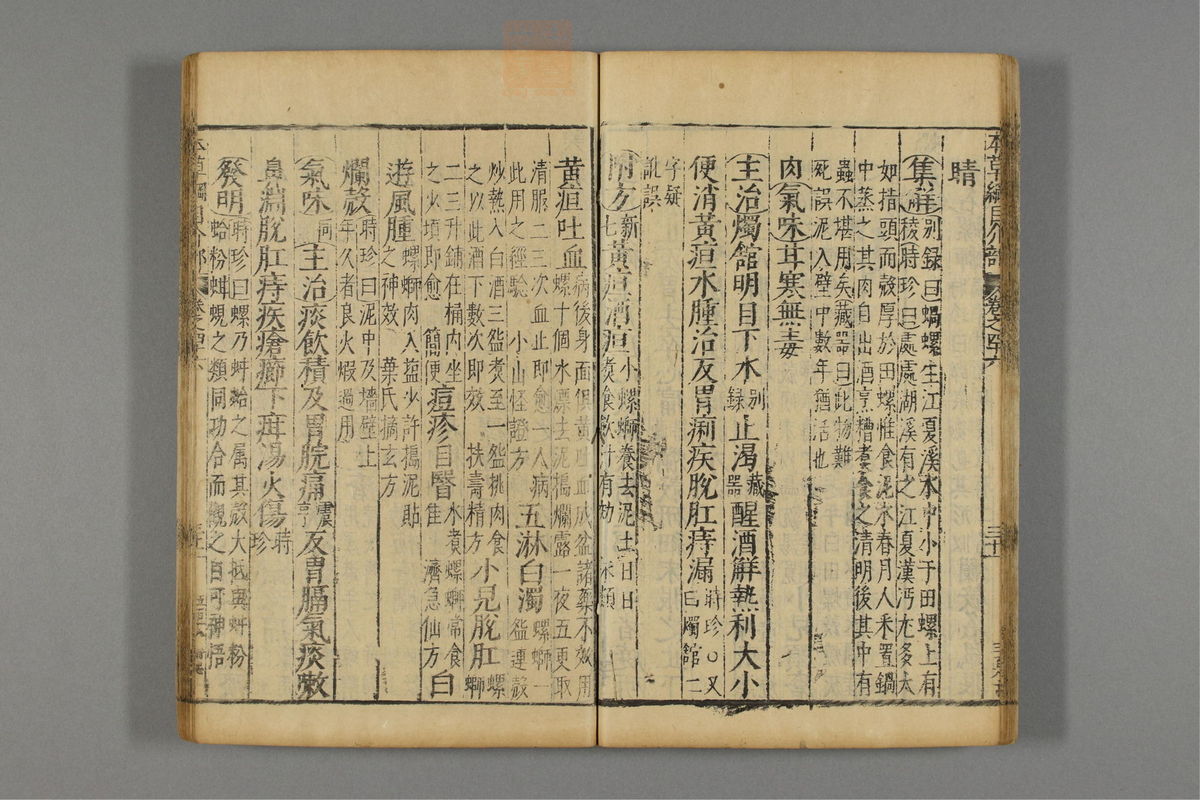 本草綱目介部 卷之四十六
睛
集解別録曰蝸螺生江夏溪水中小于田螺上有
稜時珍曰處處湖溪有之江夏漢沔尤多大
如指頭而殼厚於田螺惟食泥水春月人采置鍋
中蒸之其肉自出酒烹糟煮食之清明後其中有
蟲不堪用矣藏器曰此物難
死誤泥入壁中數年猶活也
肉氣味甘寒無毒
主治燭館明目下水別録止渴藏器醒酒解熱利大小
便消黃疸水腫治反胃痢疾脫肛痔漏時珍○又曰燭館二
字疑
訛誤
附方新七黃疸酒疸小螺螄養去泥土日日煮食飲汁有効
黃疸吐血病後身面俱黃吐血成盆諸藥不效用
螺十個水漂去泥搗爛露一夜五更取
清服二三次血止即愈一人病
此用之經驗 小山怪證方 五淋白濁螺螄一盌連殼
炒熱入白酒三盌煮至一盌挑肉食
之以此酒下數次即效 扶壽精方 小兒脫肛螺螄
二三升鋪在桶內坐
之少頃即愈 簡便 痘疹目瞖水煮螺螄常食佳 濟急仙方 白
遊風腫螺螄肉入盐少許搗泥貼
之神效 葉氏摘玄方
爛殼時珍曰泥中及墻壁上
年久者良火煅過用
氣味同主治痰飲積及胃脘痛震亨反胃膈氣痰嗽
鼻淵脫肛痔疾瘡癤下疳湯火傷時珍
發明時珍曰螺乃蚌蛤之属其殼大抵與蚌粉
蛤粉蚶蜆之類同功合而觀之自可神悟
本草綱目介部 卷之四十六